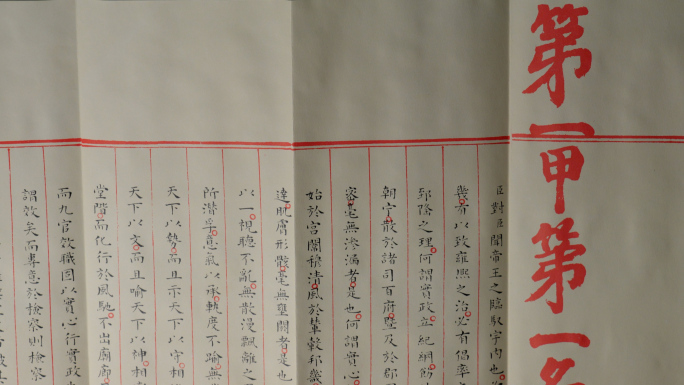 第一甲第一名
臣對臣聞帝王之臨馭宇內也
幾有以致雍熙之治必有倡率
郅隆之理何謂實政立紀綱飭
朝宁散於諸司百府暨及於郡
密毫無滲漏者是也何謂實心
始於宮闈穆清風於輦轂邦畿
達肌膚形骸毫無壅閼者是也
以一視聽不亂無散漫飄離之
所潛孚意氣以承軌度不踰無
天下以勢而且示天下以守相
天下以文而且喻天下以神相
堂階而化行於風馳不出廟廊
而九官效職固以實心行實政
謂效矣而專意於檢察則檢察